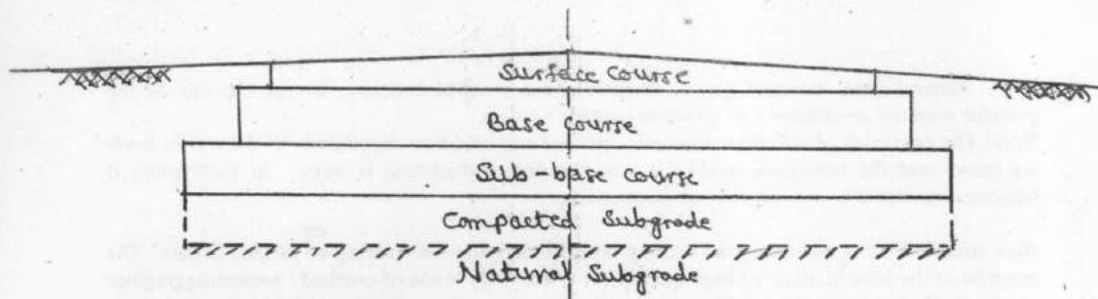 Surface Course
Base Course
Sub-base Course
Compacted Subgrade
Natural Subgrade